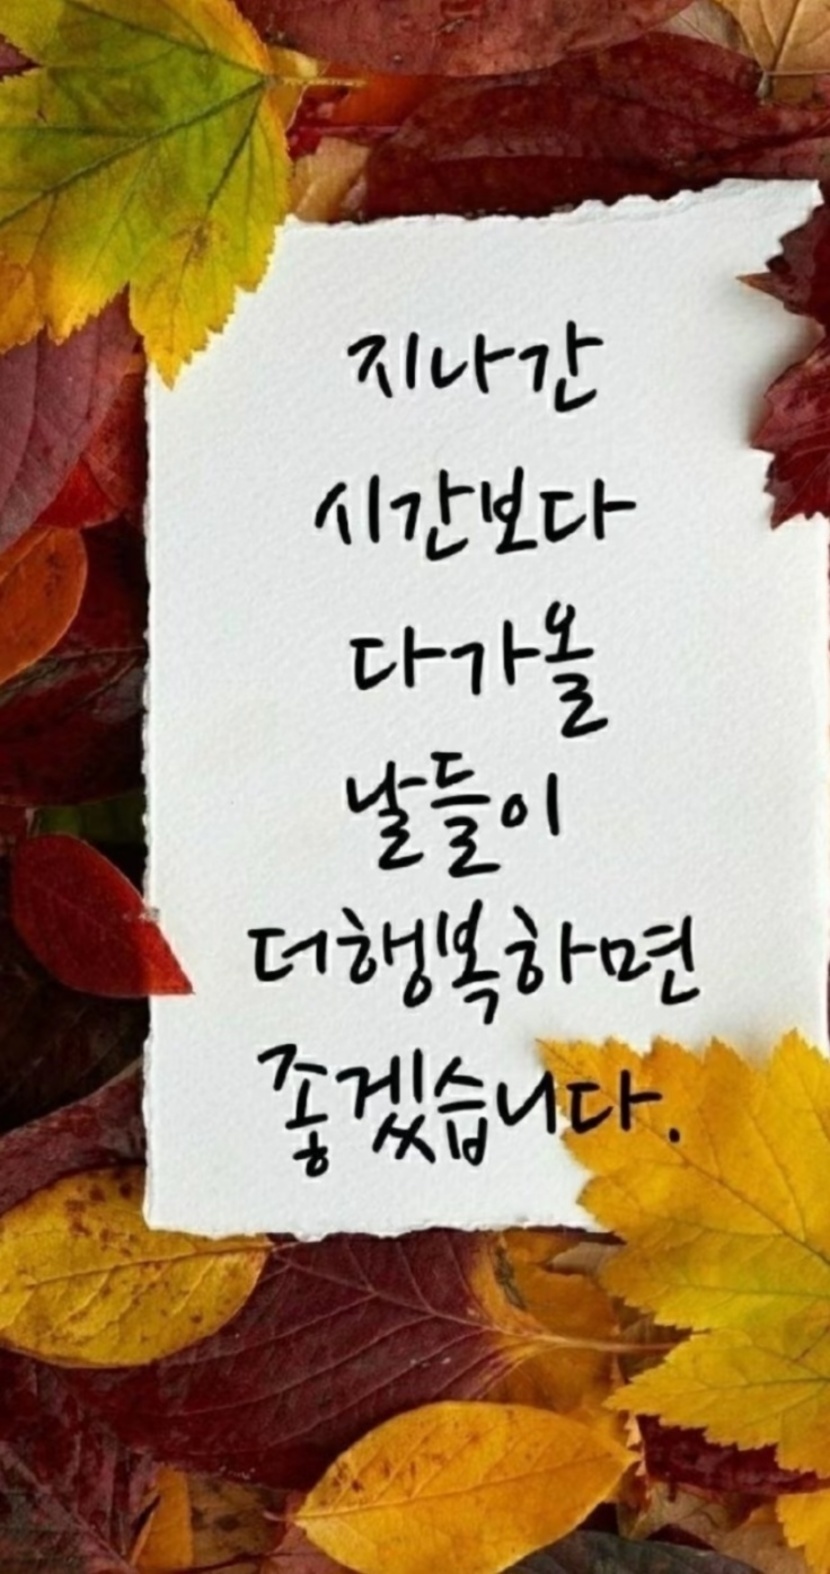 지나간
시간보다
다가올
날들이
더행복하면
좋겠습니다.